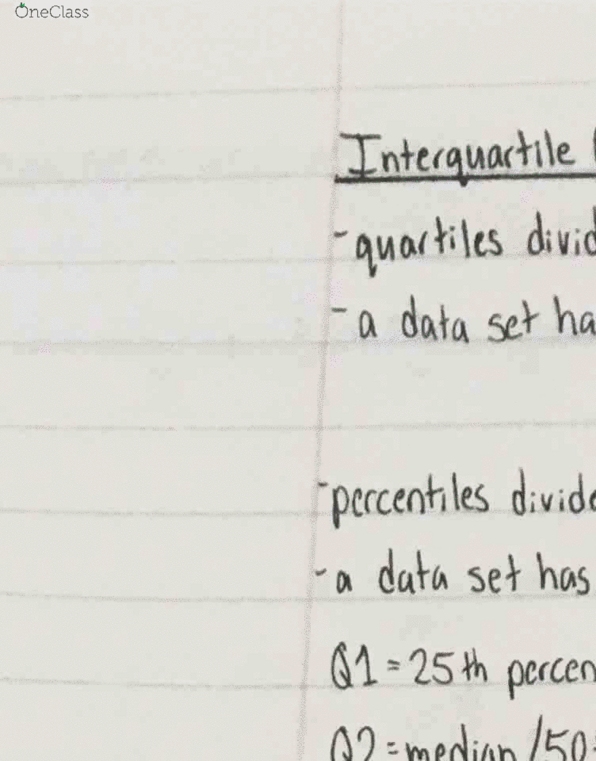 OneClass
Interquartile
-quartiles divid
-a data set ha
-percentiles divide
-a data set has
Q1=25th percen
Q2=median/50